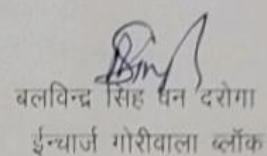 बलविन्द्र सिंह वन दरोगा
ईन्चार्ज गोरीवाला ब्लॉक